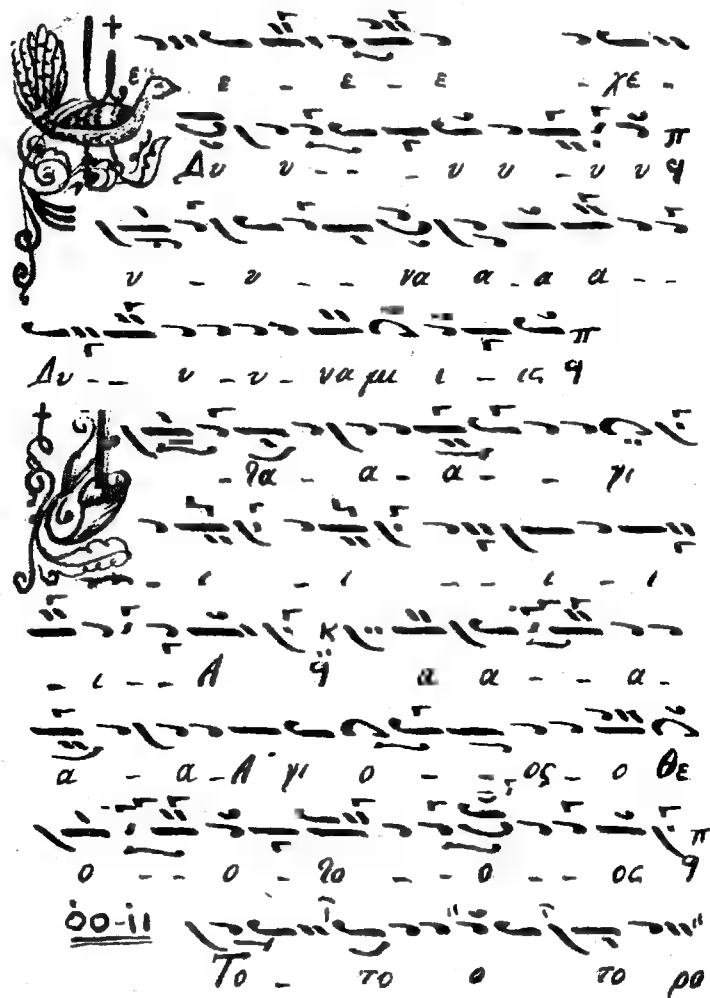 ε - ε - ε - χε -
Δυ υ - - - υ υ - υ υ
υ - υ - - να α - α α - -
Δυ - - υ - υ - να μι ι - ις
- γα - α - α - - γι
- ι - ι - - ι - ι
- ι - - Α α α - - α -
α - α - Α γι ο - - ος - ο Θε
ο - - ο - γο - - ο - - ος
Το - το ο το ρο